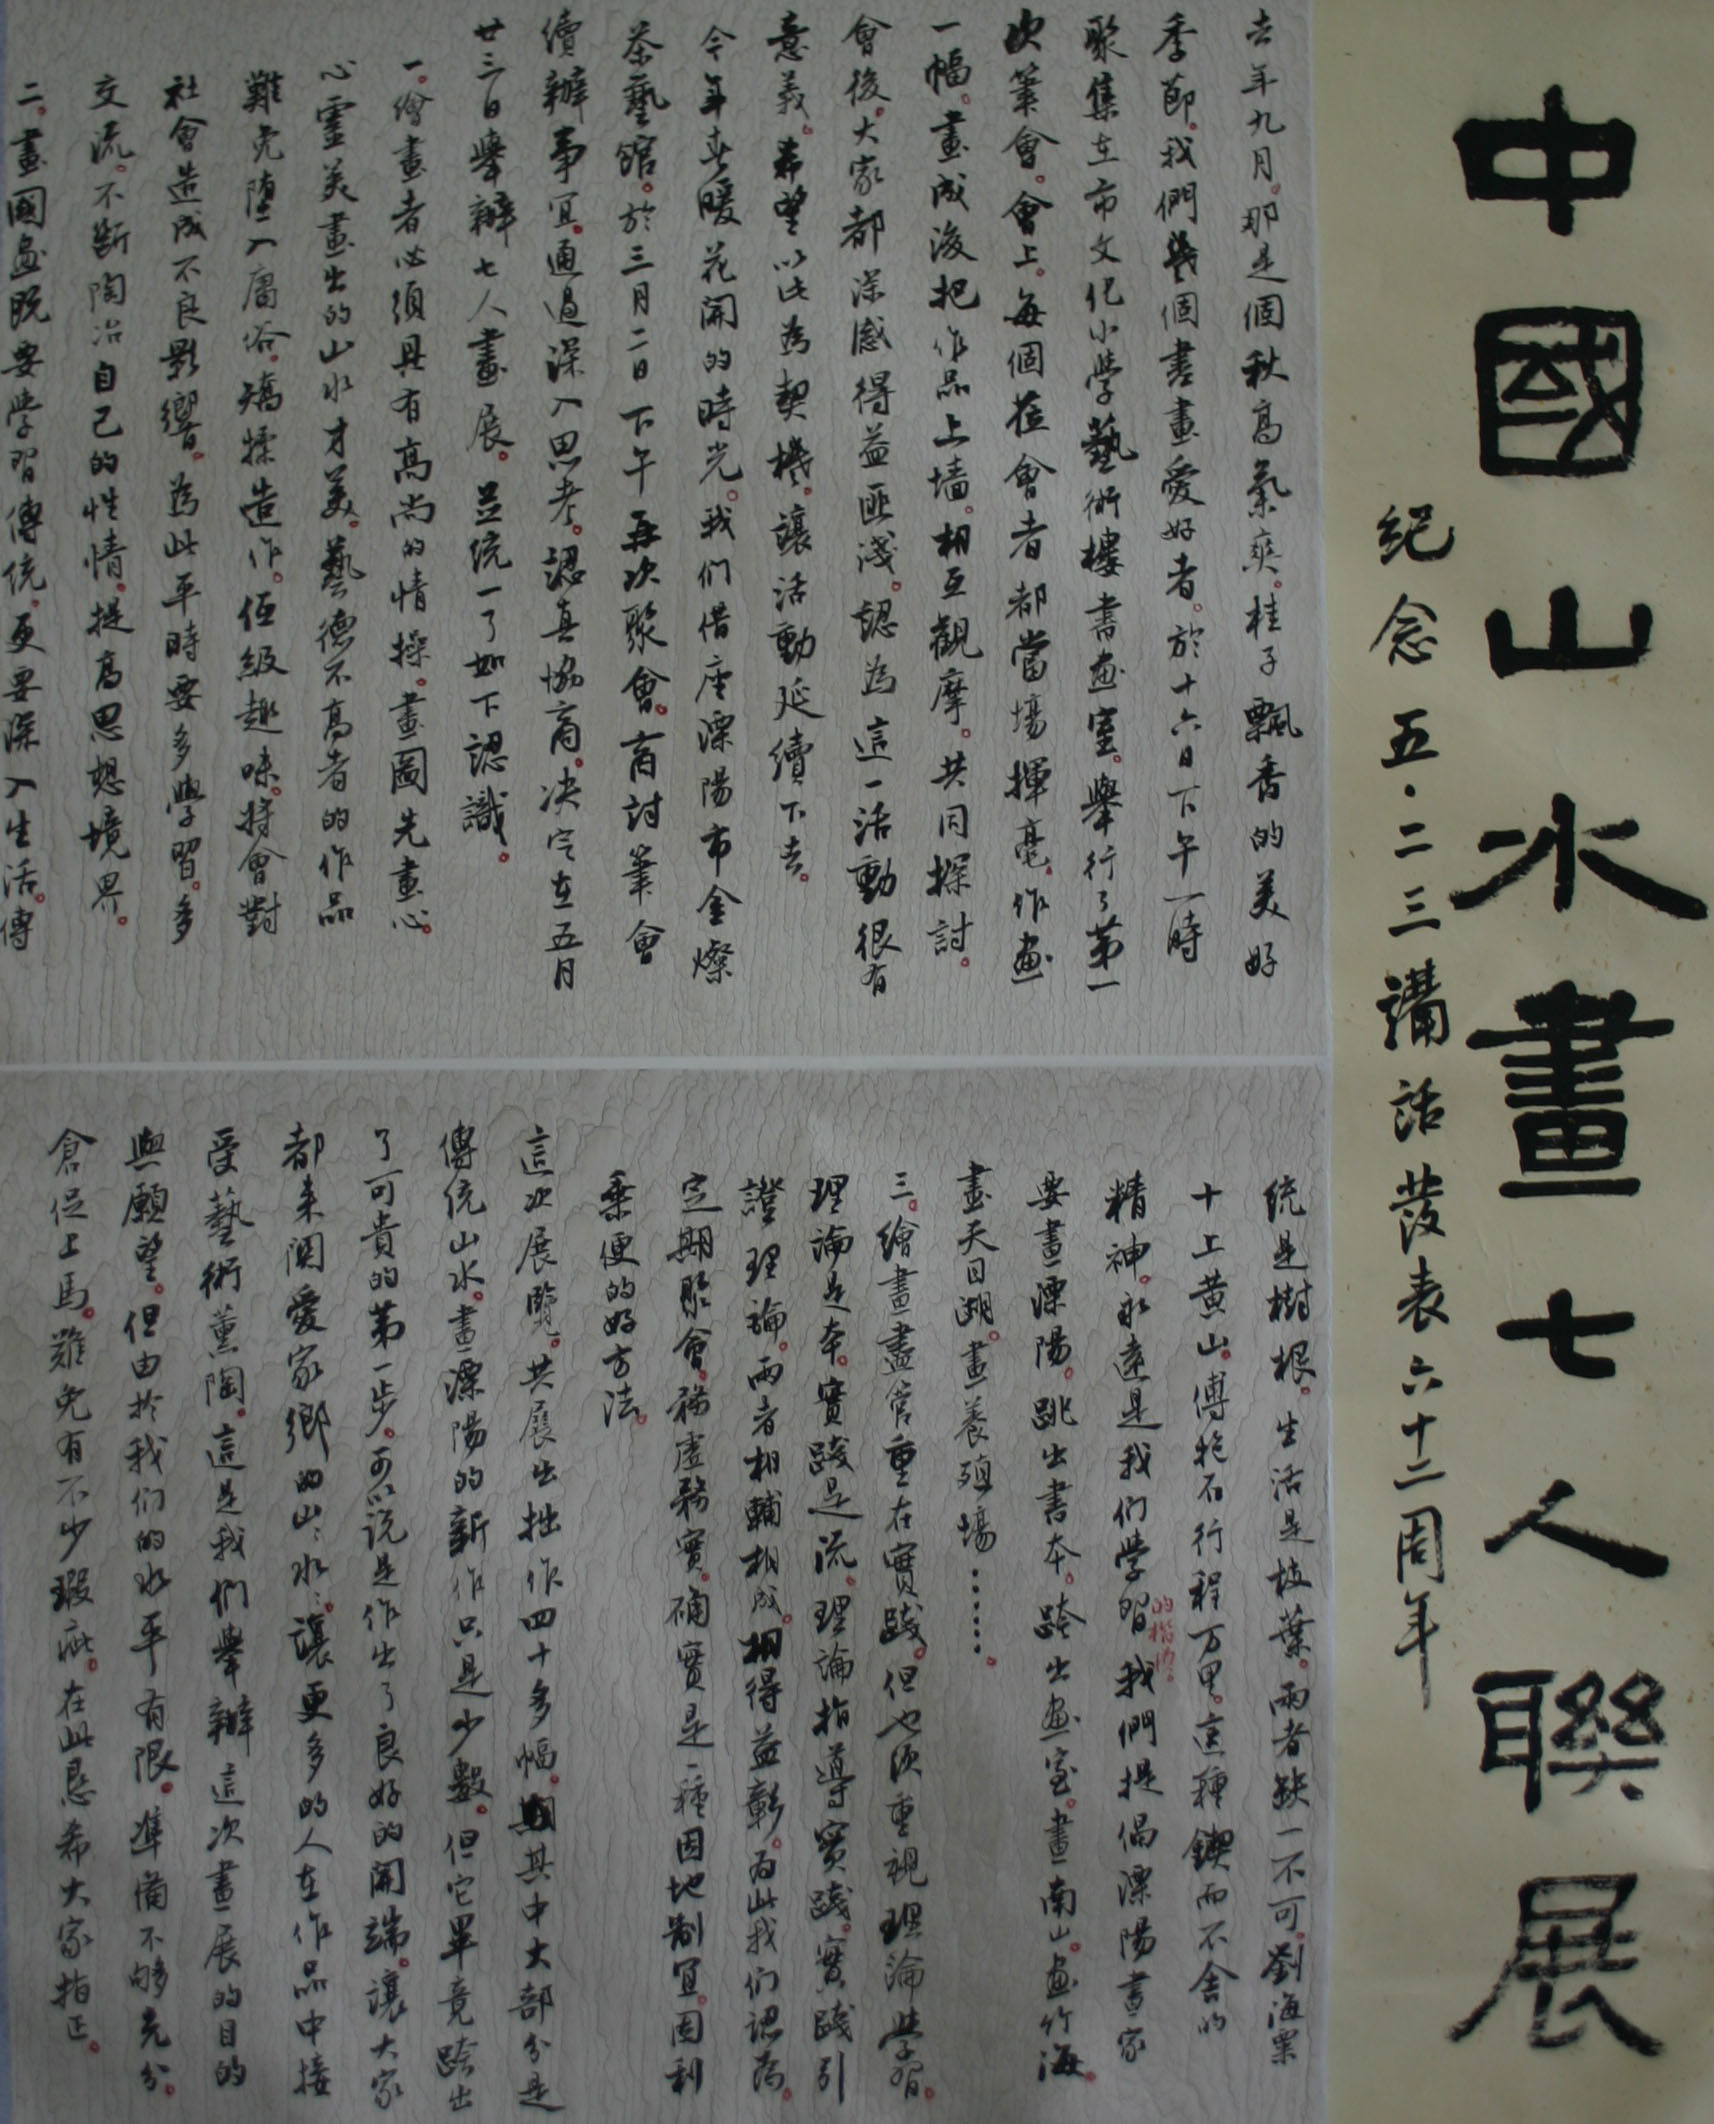 中國山水畫七人聯展
紀念五·二三講話發表六十二周年
去年九月。那是個秋高氣爽。桂子飄香的美好
季節。我們幾個書畫愛好者。於十六日下午一時
聚集在市文化小學藝術樓書画室。舉行了第一
次筆會。會上。每個蒞會者都當場揮毫。作画
一幅。畫成後把作品上墙。相互觀摩。共同探討。
會後。大家都深感得益匪淺。認為這一活動很有
意義。希望以此為契機。讓活動延續下去。
今年春暖花開的時光。我们借座溧陽市金燦
茶藝館。於三月二日下午再次聚會。商討筆會
續辦事宜。通過深入思考。認真協商。决定在五月
廿三日舉辦七人畫展。並统一了如下認識。
一。繪畫者必須具有高尚的情操。畫圖先畫心。
心靈美畫出的山水才美。藝德不高者的作品
難免墮入庸俗。矯揉造作。低級趣味。将會對
社會造成不良影響。為此平時要多學習。多
交流。不断陶冶自己的性情。提高思想境界。
二。畫國画既要学習傳統。更要深入生活。傳
統是樹根。生活是枝葉。兩者缺一不可。劉海粟
十上黄山。傅抱石行程万里。這種鍥而不舍的
精神。永遠是我们學習的楷模。我們提倡溧陽畫家
要畫溧陽。跳出書本。跨出画室。畫南山。画竹海。
畫天目湖。畫養殖場……。
三。繪畫盡管重在實踐。但也须重視理論學習。
理論是本。實踐是流。理論指導實踐。實踐引
證理論。兩者相輔相成。相得益彰。为此我们認為。
定期聚會。務虛務實。確實是一種因地制宜。因利
乘便的好方法。
這次展覽。共展出拙作四十多幅。其中大部分是
傳統山水。畫溧陽的新作只是少數。但它畢竟跨出
了可貴的第一步。可以说是作出了良好的開端。讓大家
都来関愛家鄉的山山水水。讓更多的人在作品中接
受藝術薰陶。這是我們舉辦這次畫展的目的
與願望。但由於我们的水平有限。準備不够充分。
倉促上馬。難免有不少瑕疵。在此恳希大家指正。